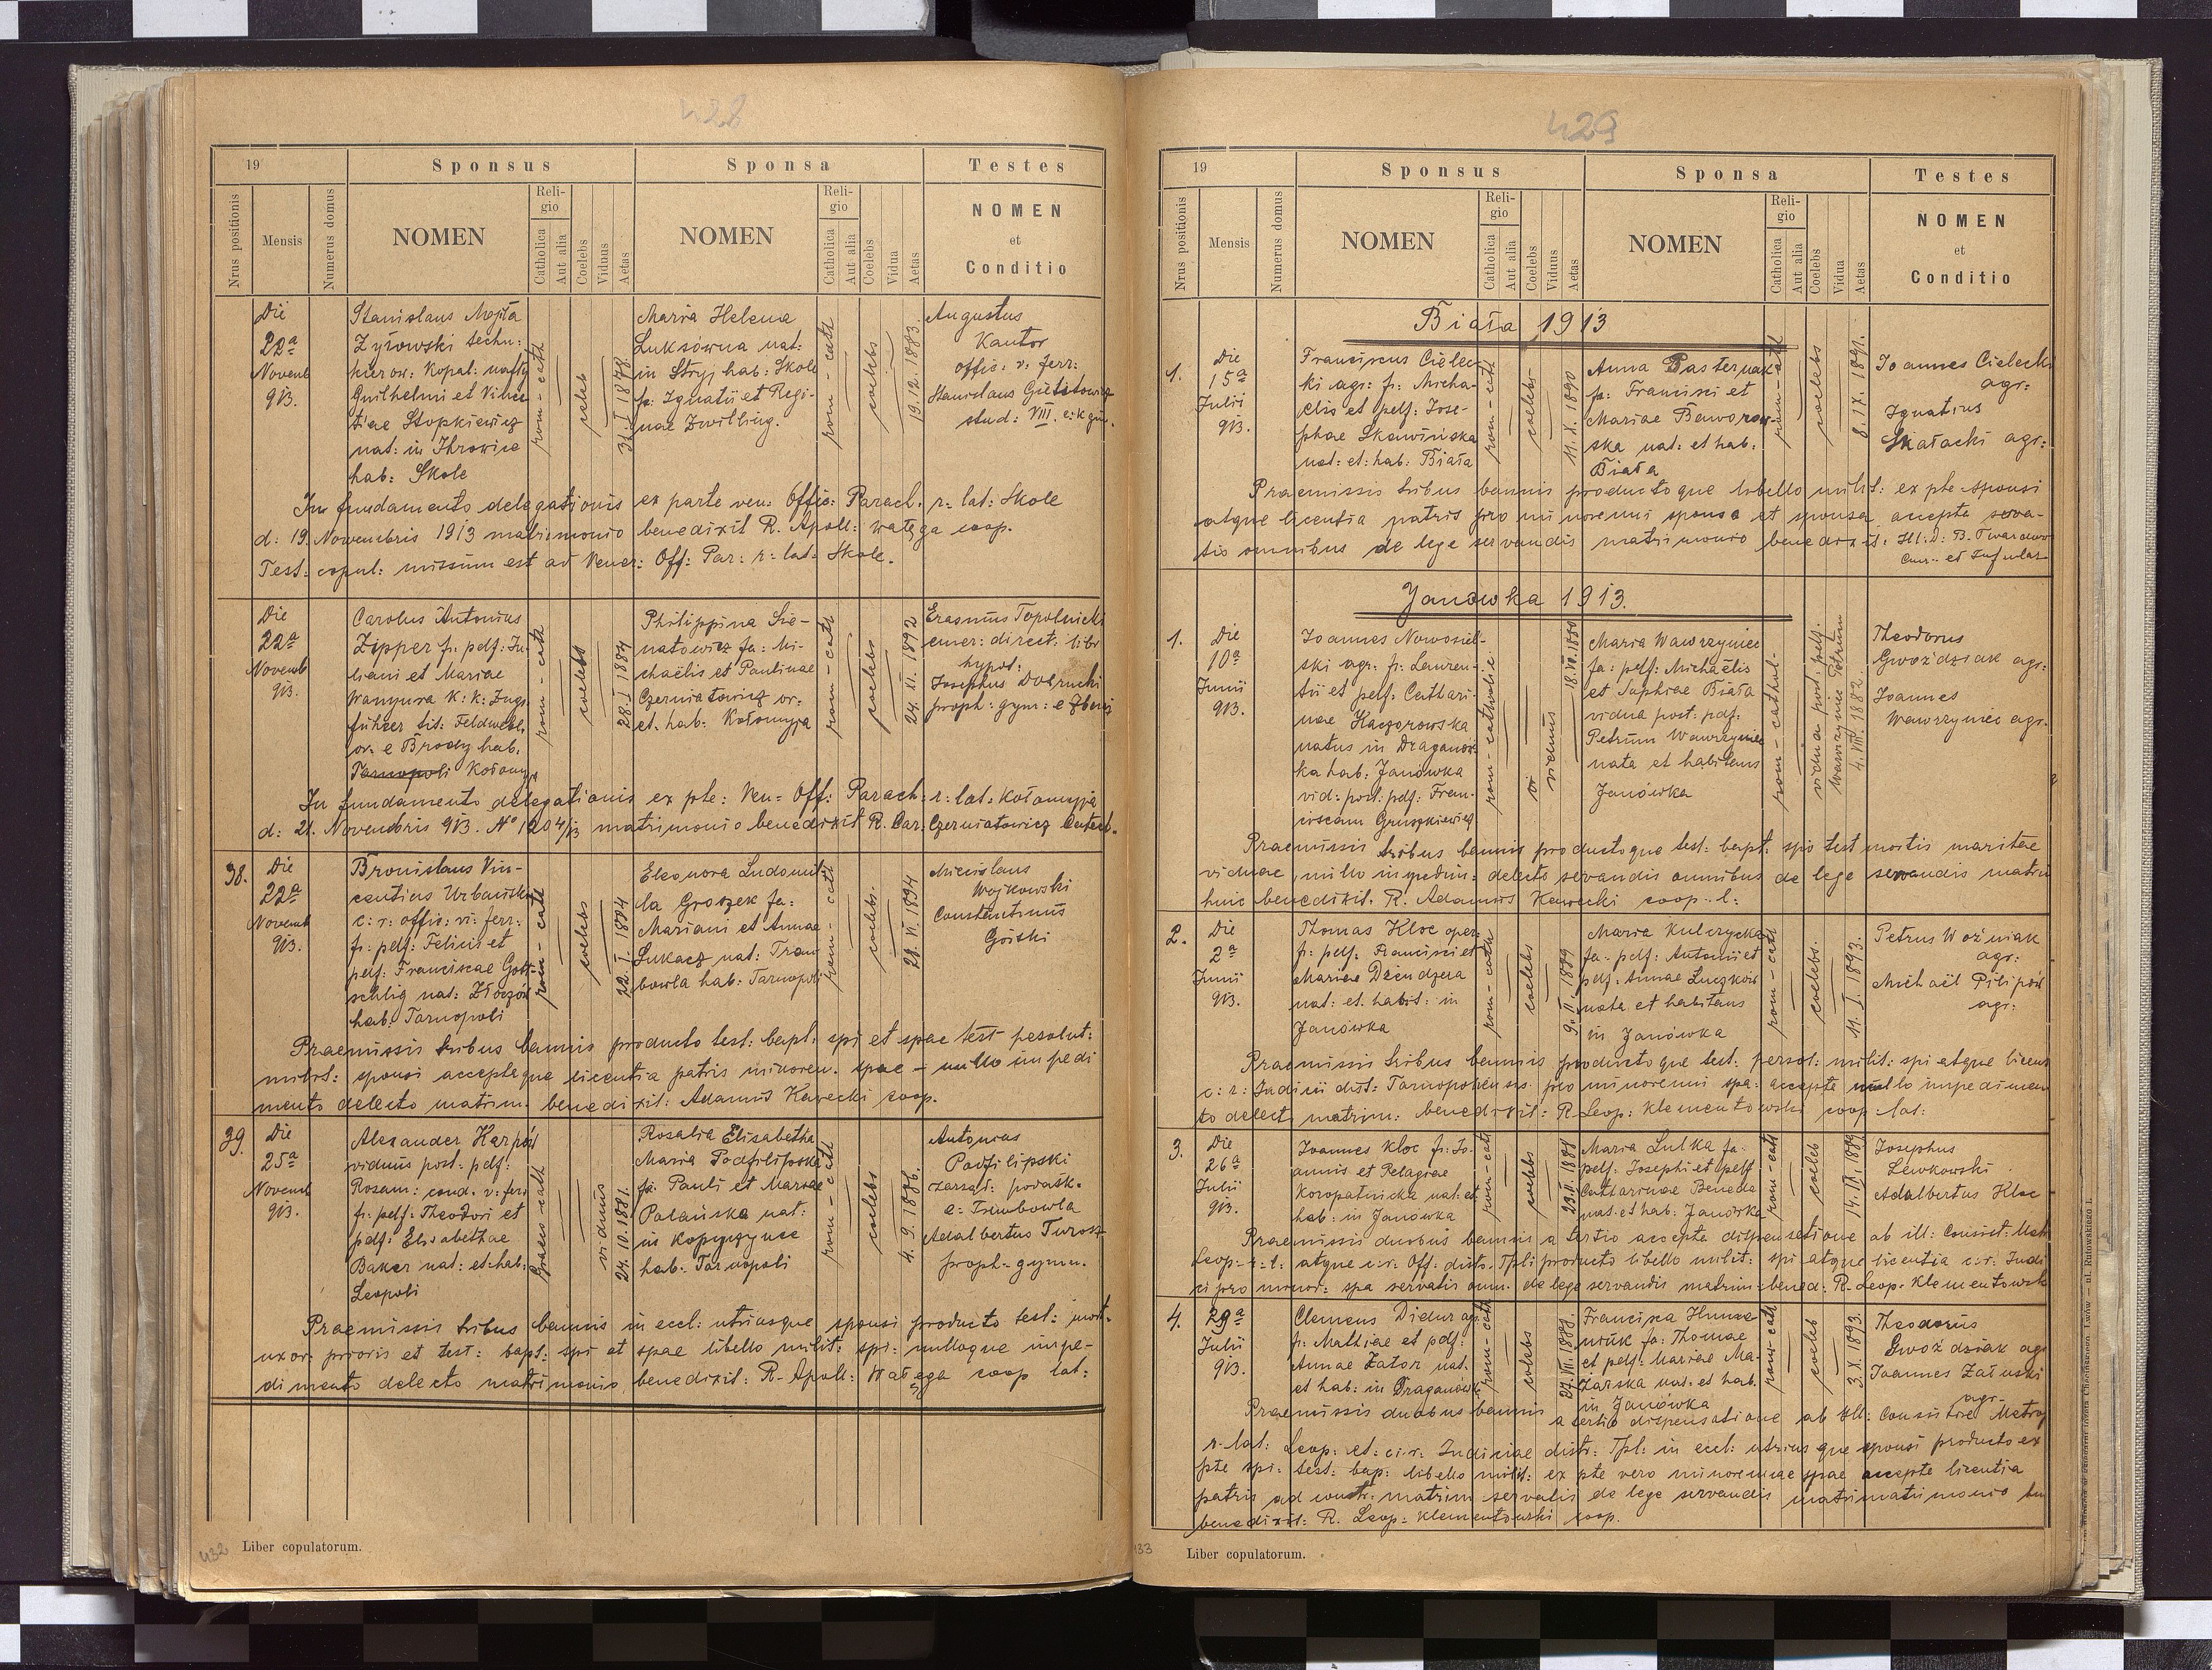 428
19
Sponsus
Sponsa
Testes
Nrus positionis
Mensis
Numerus domus
NOMEN
Religio
Catholica
Aut alia
Coelebs
Viduus
Aetas
NOMEN
Religio
Catholica
Aut alia
Coelebs
Vidua
Aetas
NOMEN
et
Conditio
Die
22a
Novemb
913.
Stanislaus
Żyłowski techn:
kierow: kopal: nafty
Guilhelmi et
Stopkiewicz
nat: in
hab: Skole
rom-cath
celeb
31. I 1878.
Maria Helena
Luksówna nat:
in Stryj hab: Skole
fa: Ignatii et Regi-
nae Zwilling.
rom-cath
coelebs
19.12.1883.
Augustus
Kantor
offic: v: ferr:
Stanislaus
stud: VIII. c: k gim.
In fundamento delegationis ex parte ven: Offic: Paroch. r: lat: Skole
d: 19. Novembris 1913 matrimonio benedixit R. Apoll: Wałęga coop.
Test: copul: missum est ad Vener: Off: Par: r: lat: Skole.
Die
22a
Novemb
913.
Carolus Antonius
Zipper f: pdf: Ju-
liani et Mariae
Wanyura K: k: Zugs
führer tit: Feldweb.
or. e Brody hab.
Tarnopoli Kołomyja
rom-cath
coelebs
28. I 1884
Philippina Sie-
natowicz fa: Mi-
chaëlis et Paulinae
Czerniatowicz or-
et. hab: Kołomyja
rom-cath
coelebs
24. XI. 1892
Erasmus Topolnicki
emer: direct: libr
hypot:
Josephus Dobrucki
proph: gym: e Zbaraż
In fundamento delegationis ex pte: Ven: Off: Paroch: r: lat: Kołomyja
d: 21. Novembris 913. No 1204/13 matrimonio benedixit R. Car. Czerniatowicz Catech.
38.
Die
22a
Novemb
913.
Bronislaus Vin-
centius Urbański
c: r: offic: vi: ferr:
f: pdf: Felicis et
pdf: Franciscae Gott-
schlig nat: Złoczów
hab: Tarnopoli
rom-cath
coelebs
22. I. 1884
Eleonora Ludomil
la Groszek fa:
Mariani et Annae
Łukacz nat: Trem
bowla hab: Tarnopoli
rom-cath
coelebs.
28. VI. 1894
Miecislaus
Wojkowski
Constantinus
Górski
Praemissis tribus bannis producto test: bapt: spi et spae test persolut:
milit: sponsi accepteque licentia patris minoren. spae - nullo impedi
mento delecto matrim. benedixit: Adamus Kawecki coop.
39.
Die
25a
Novemb
913.
Alexander Karpów
viduus post: pdf:
Rosam: cond. v: ferr
f: pdf: Theodori et
pdf: Elisabethae
Baker nat: et hab:
Leopoli
Graeco cath
viduus
24.10.1881.
Rosalia Elisabetha
Maria Podfilipska
fa: Pauli et Mariae
Palańska nat:
in Kopyczynce
hab: Tarnopoli
rom-cath
coelebs
4. 9. 1886.
Antonius
Podfilipski
zarząd: podatk.
e: Trembowla
Adalbertus Turosz
proph: gymn.
Praemissis tribus bannis in eccl: utriusque sponsi producto test: mort.
uxor: prioris et test: bapt: spi et spae libello milit: spi: nulloque impe-
dimento delecto matrimonio benedixit: R. Apoll: Wałęga coop lat:
432
Liber copulatorum.
429
19
Sponsus
Sponsa
Testes
Nrus positionis
Mensis
Numerus domus
NOMEN
Religio
Catholica
Aut alia
Coelebs
Viduus
Aetas
NOMEN
Religio
Catholica
Aut alia
Coelebs
Vidua
Aetas
NOMEN
et
Conditio
Biała 1913
1.
Die
15a
Julii
913.
Franciscus Cielec-
ki agr: f: Micha-
elis et pdf: Jose-
phae Skawińska
nat: et: hab: Biała
rom-cath
coelebs
11. X. 1890
Anna Pasternak
fa: Francisci et
Mariae Baworow-
ska nat: et hab:
Biała
rom-cath
coelebs
8. IX. 1891.
Joannes Cielecki
agr:
Ignatius
Skałacki agr:
Praemissis tribus bannis productoque libello milit: ex pte sponsi
atque licentia patris pro minorenni sponso et sponsa accepta serva-
tis omnibus de lege servandis matrimonio benedixit: Ill: D: B. Twardowski
Can: et Infulat
Janówka 1913.
1.
Die
10a
Junii
913.
Joannes Nowosiel-
ski agr: f: Lauren-
tii et pdf: Cathari-
nae Kaczorowska
natus in Draganów
ka hab: Janówka
vid: post: pdf: Fran-
ciscam Gruszkiewicz
rom-catholic:
viduus
18. VII. 1880
Maria Wawrzyniec
fa: pdf: Michaëlis
et Sophiae Biała
vidua post: pdf.
Petrum Wawrzyniec
nata et habitans
Janówka
rom-cathol-
vidua post. pdf.
Wawrzyniec Petrum
4. VIII. 1882.
Theodorus
Gwoździak agr:
Joannes
Wawrzyniec agr.
Praemissis tribus bannis productoque test: bapt: spo test mortis maritae
viduae, nullo impedim: delecto servandis omnibus de lege servandis matri
huic benedixit. R. Adamus Kawecki coop. l:
2.
Die
2a
Junii
913.
Thomas Kloc oper.
f: pdf: Francisci et
Mariae Dziendzera
nat: et. habit: in
Janówka
rom-cath
coelebs
9. II. 1889
Maria Kulczycka
fa: pdf: Antonii et
pdf: Annae Luczków
nata et habitans
in Janówka
rom-cath
coelebs.
11. I. 1893.
Petrus Woźniak
agr:
Michaël Pilipów
agr:
Praemissis tribus bannis productoque test: persol: milit: spi atque licent
c: r: Judicii dist: Tarnopolensis pro minorenni spa: accepta nullo impedimen
to delect: matrim: benedixit: R. Leop: Klementowski coop lat:
3.
Die
26a
Julii
913.
Joannes Kloc f: Jo-
annis et Pelagiae
Koropatnicka nat: et
hab: in Janówka
rom-cath
coelebs
23. II. 1881
Maria Lulka fa:
pdf: Josephi et pdf
Catharinae Beneda
nat. et hab: Janówka
rom-cath
coeleb
14. IX. 1889
Josephus
Lewkowski
Adalbertus Kloc
Praemissis duobus bannis a tertio accepta dispensatione ab ill: Consist: Metr
Leop: r: l: atque c: r: Off: distr. Tpli producto libello milit: spi atque licentia c: r: Judi
ci pro minor: spa servatis omn: de lege servandis matrim: bened: R. Leop. Klementowski
4.
29a
Julii
913.
Clemens Didur agr.
f: Mathiae et pdf:
Annae Zator nat.
et hab: in Draganówka
rom-cath
coelebs
27. VII. 1888
Francisca
fa: Thomae
et pdf: Mariae Ma-
zarska nat. et hab.
in Janówka
rom-cath
coeleb
3. X. 1893.
Theodorus
Gwoździak agr
Joannes Załuski
agr-
Praemissis duobus bannis a tertio dispensatione ab Ill: Consistorio Metrop
r. lat: Leop: et: c: r: Judiciae distr: Tpl: in eccl: utriusque sponsi producto ex
pte spi: test: bap: libello milit: ex pte vero minorennae spae accepta licentia
patris ad contr: matrim servatis de lege servandis matrimonio
benedixit: R. Leop: Klementowski coop.
133
Liber copulatorum.